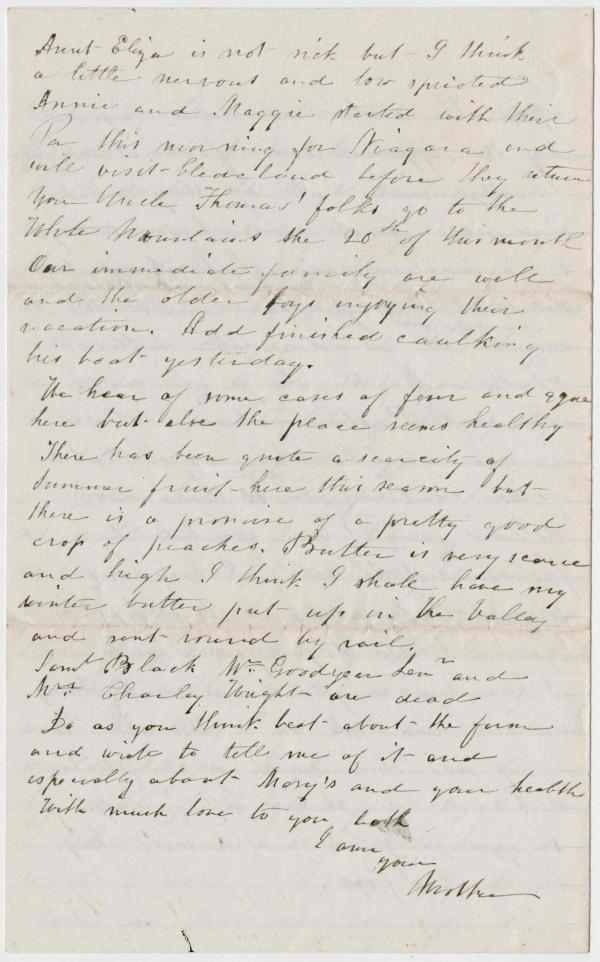 Aunt Eliza is not sick but I think
a little nervous and low spirited
Annie and Maggie started with their
Pa this morning for Niagara and
will visit Cleveland before they return
Your Uncle Thomas' folks go to the
White Mountains the 20th of this month
Our immediate family are well
and the older boys enjoying their
vacation. Add finished caulking
his boat yesterday.
We hear of some cases of fever and ague
here but else the place seems healthy
There has been quite a scarcity of
Summer fruit here this season but
there is a promise of a pretty good
crop of peaches. Butter is very scarce
and high I think I shall have my
winter butter put up in the Valley
and sent round by rail.
Saml Black Wm Goodyear Senr and
Mrs Charley Wright are dead
Do as you think best about the farm
and write to tell me of it and
especially about Mary's and your health
With much love to you both
I am
your
Mother